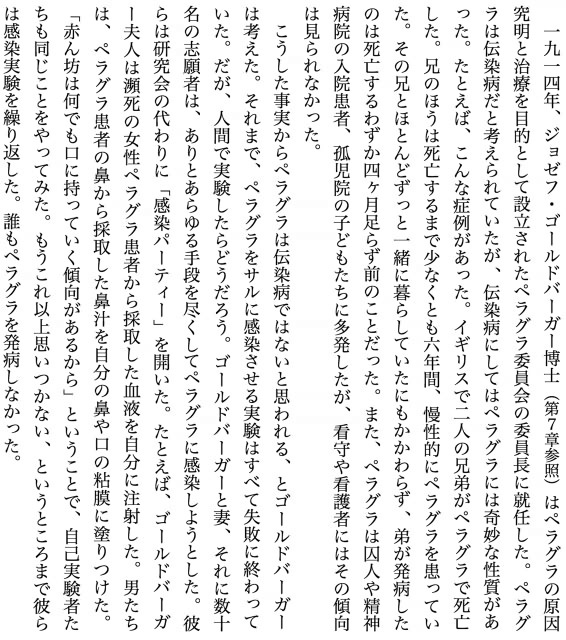 一九一四年、ジョゼフ・ゴールドバーガー博士（第７章参照）はペラグラの原因
究明と治療を目的として設立されたペラグラ委員会の委員長に就任した。ペラグ
ラは伝染病だと考えられていたが、伝染病にしてはペラグラには奇妙な性質があ
った。たとえば、こんな症例があった。イギリスで二人の兄弟がペラグラで死亡
した。兄のほうは死亡するまで少なくとも六年間、慢性的にペラグラを患ってい
た。その兄とほとんどずっと一緒に暮らしていたにもかかわらず、弟が発病した
のは死亡するわずか四ヶ月足らず前のことだった。また、ペラグラは囚人や精神
病院の入院患者、孤児院の子どもたちに多発したが、看守や看護者にはその傾向
は見られなかった。
こうした事実からペラグラは伝染病ではないと思われる、とゴールドバーガー
は考えた。それまで、ペラグラをサルに感染させる実験はすべて失敗に終わって
いた。だが、人間で実験したらどうだろう。ゴールドバーガーと妻、それに数十
名の志願者は、ありとあらゆる手段を尽くしてペラグラに感染しようとした。彼
らは研究会の代わりに「感染パーティー」を開いた。たとえば、ゴールドバーガ
ー夫人は瀕死の女性ペラグラ患者から採取した血液を自分に注射した。男たち
は、ペラグラ患者の鼻から採取した鼻汁を自分の鼻や口の粘膜に塗りつけた。
「赤ん坊は何でも口に持っていく傾向があるから」ということで、自己実験者た
ちも同じことをやってみた。もうこれ以上思いつかない、というところまで彼ら
は感染実験を繰り返した。誰もペラグラを発病しなかった。